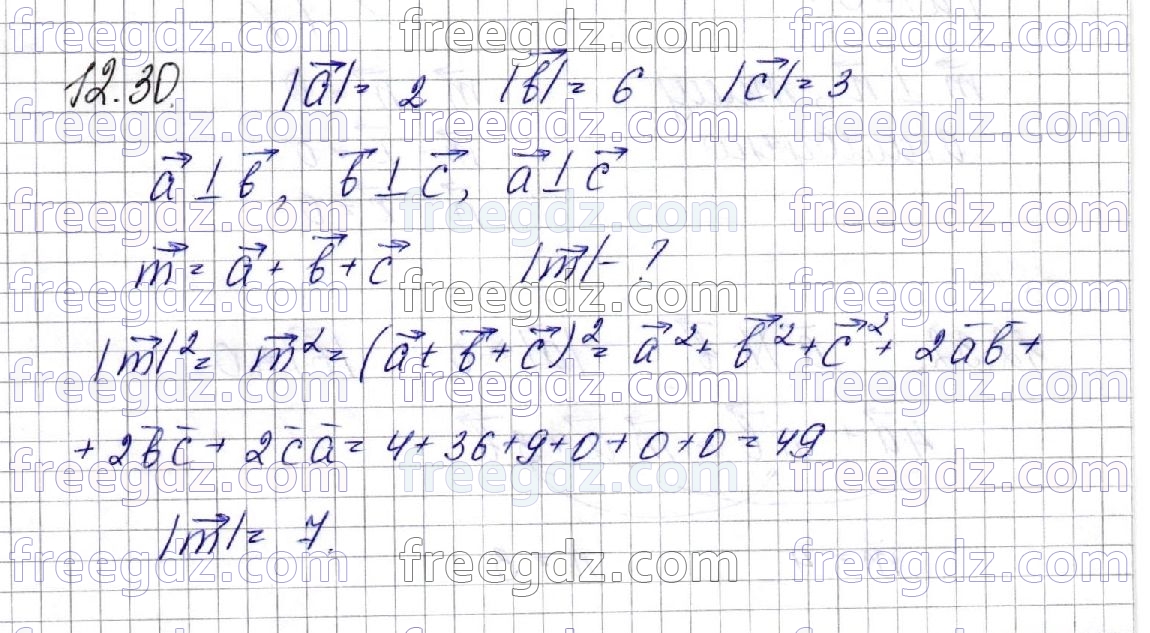 12.30. |a⃗| = 2 |b⃗| = 6 |c⃗| = 3
a⃗ ⊥ b⃗, b⃗ ⊥ c⃗, a⃗ ⊥ c⃗
m⃗ = a⃗ + b⃗ + c⃗ |m⃗| - ?
|m⃗|² = m⃗² = (a⃗ + b⃗ + c⃗)² = a⃗² + b⃗² + c⃗² + 2a̅b̅ +
+ 2b̅c̅ + 2c̅a̅ = 4 + 36 + 9 + 0 + 0 + 0 = 49
|m⃗| = 7.
freegdz.com freegdz.com freegdz.com
freegdz.com freegdz.com freegdz.com
freegdz.com freegdz.com freegdz.com
freegdz.com freegdz.com freegdz.com
freegdz.com freegdz.com freegdz.com
freegdz.com freegdz.com freegdz.com
freegdz.com freegdz.com freegdz.com